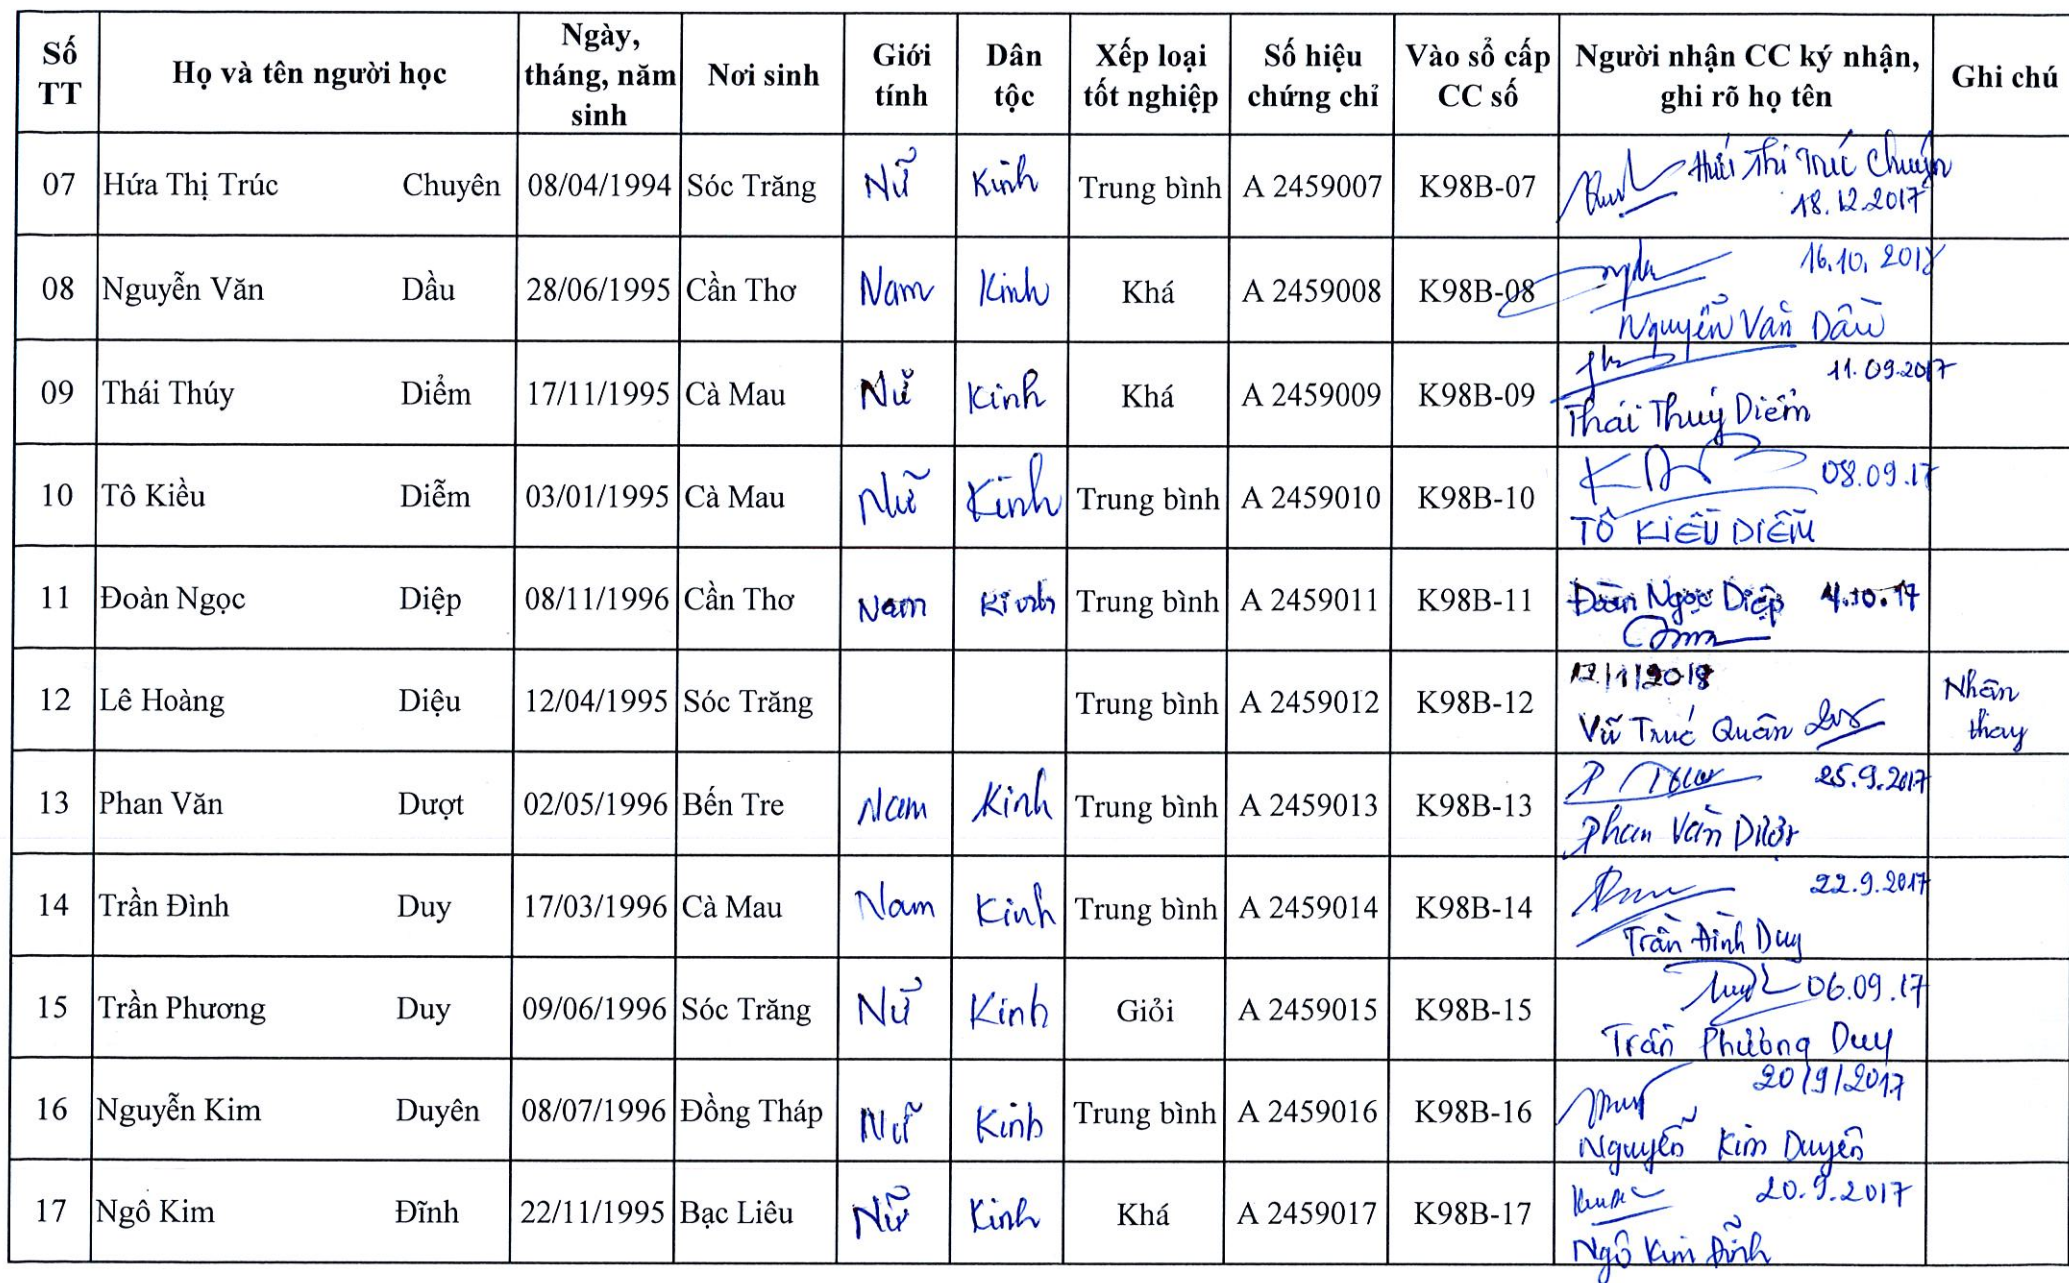 Số TT Họ và tên người học Ngày, tháng, năm sinh Nơi sinh Giới tính Dân tộc Xếp loại tốt nghiệp Số hiệu chứng chỉ Vào sổ cấp CC số Người nhận CC ký nhận, ghi rõ họ tên Ghi chú
07 Hứa Thị Trúc Chuyên 08/04/1994 Sóc Trăng Nữ Kinh Trung bình A 2459007 K98B-07 Hứa Thị Trúc Chuyên
18.12.2017
08 Nguyễn Văn Dầu 28/06/1995 Cần Thơ Nam Kinh Khá A 2459008 K98B-08 16.10.2018
Nguyễn Văn Dầu
09 Thái Thúy Diểm 17/11/1995 Cà Mau Nữ Kinh Khá A 2459009 K98B-09 11.09.2017
Thái Thúy Diểm
10 Tô Kiều Diễm 03/01/1995 Cà Mau Nữ Kinh Trung bình A 2459010 K98B-10 08.09.17
TÔ KIỀU DIỄM
11 Đoàn Ngọc Diệp 08/11/1996 Cần Thơ Nam Kinh Trung bình A 2459011 K98B-11 Đoàn Ngọc Diệp 4.10.17
12 Lê Hoàng Diệu 12/04/1995 Sóc Trăng Trung bình A 2459012 K98B-12 12/1/2018
Vũ Trúc Quân Nhận thay
13 Phan Văn Dượt 02/05/1996 Bến Tre Nam Kinh Trung bình A 2459013 K98B-13 25.9.2017
Phan Văn Dượt
14 Trần Đình Duy 17/03/1996 Cà Mau Nam Kinh Trung bình A 2459014 K98B-14 22.9.2017
Trần Đình Duy
15 Trần Phương Duy 09/06/1996 Sóc Trăng Nữ Kinh Giỏi A 2459015 K98B-15 06.09.17
Trần Phương Duy
16 Nguyễn Kim Duyên 08/07/1996 Đồng Tháp Nữ Kinh Trung bình A 2459016 K98B-16 20/9/2017
Nguyễn Kim Duyên
17 Ngô Kim Đĩnh 22/11/1995 Bạc Liêu Nữ Kinh Khá A 2459017 K98B-17 20.9.2017
Ngô Kim Đĩnh